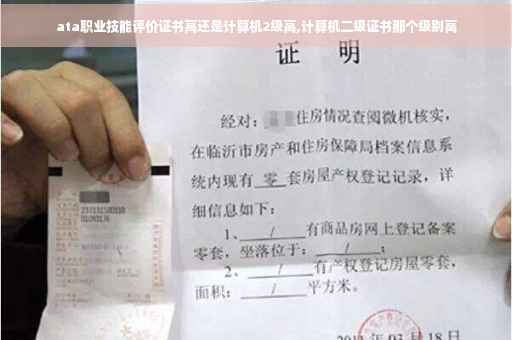 ata职业技能评价证书高还是计算机2级高,计算机二级证书那个级别高
证 明
经对: 住房情况查阅微机核实,
在临沂市房产和住房保障局档案信息系
统内现有 零 套房屋产权登记记录,详
细信息如下:
1、 / 有商品房网上登记备案
零套,坐落位于: / ;
2、 / 有产权登记房屋零套,
面积: / 平方米。
年 03 月 18 日